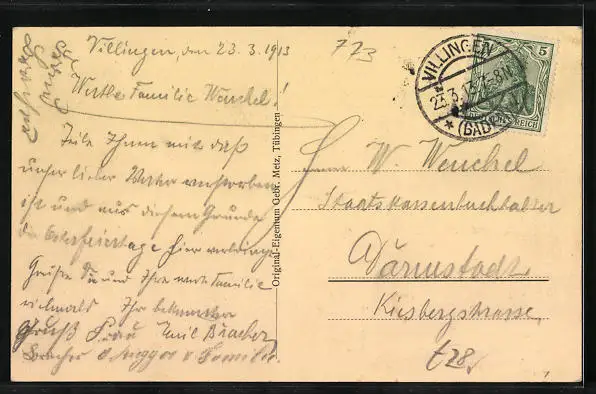 Villingen, den 23.3.1913
Werte Familie Weuchel!
Teile Ihnen mit daß
unser lieber Vater verstorben
ist und aus diesem Grunde
die Osterfeiertage hier verbringe
Grüße Sie und Ihre werte Familie
vielmals Ihr bekannter
Gruß Frau Emil Bracher
773
VILLINGEN
23.3.13.7-8N.
* (BADEN)
5
DEUTSCHES REICH
Original-Eigentum Gebr. Metz, Tübingen
Herrn W. Weuchel
Staatskassenbuchhalter
Darmstadt
Kiesbergstrasse
128